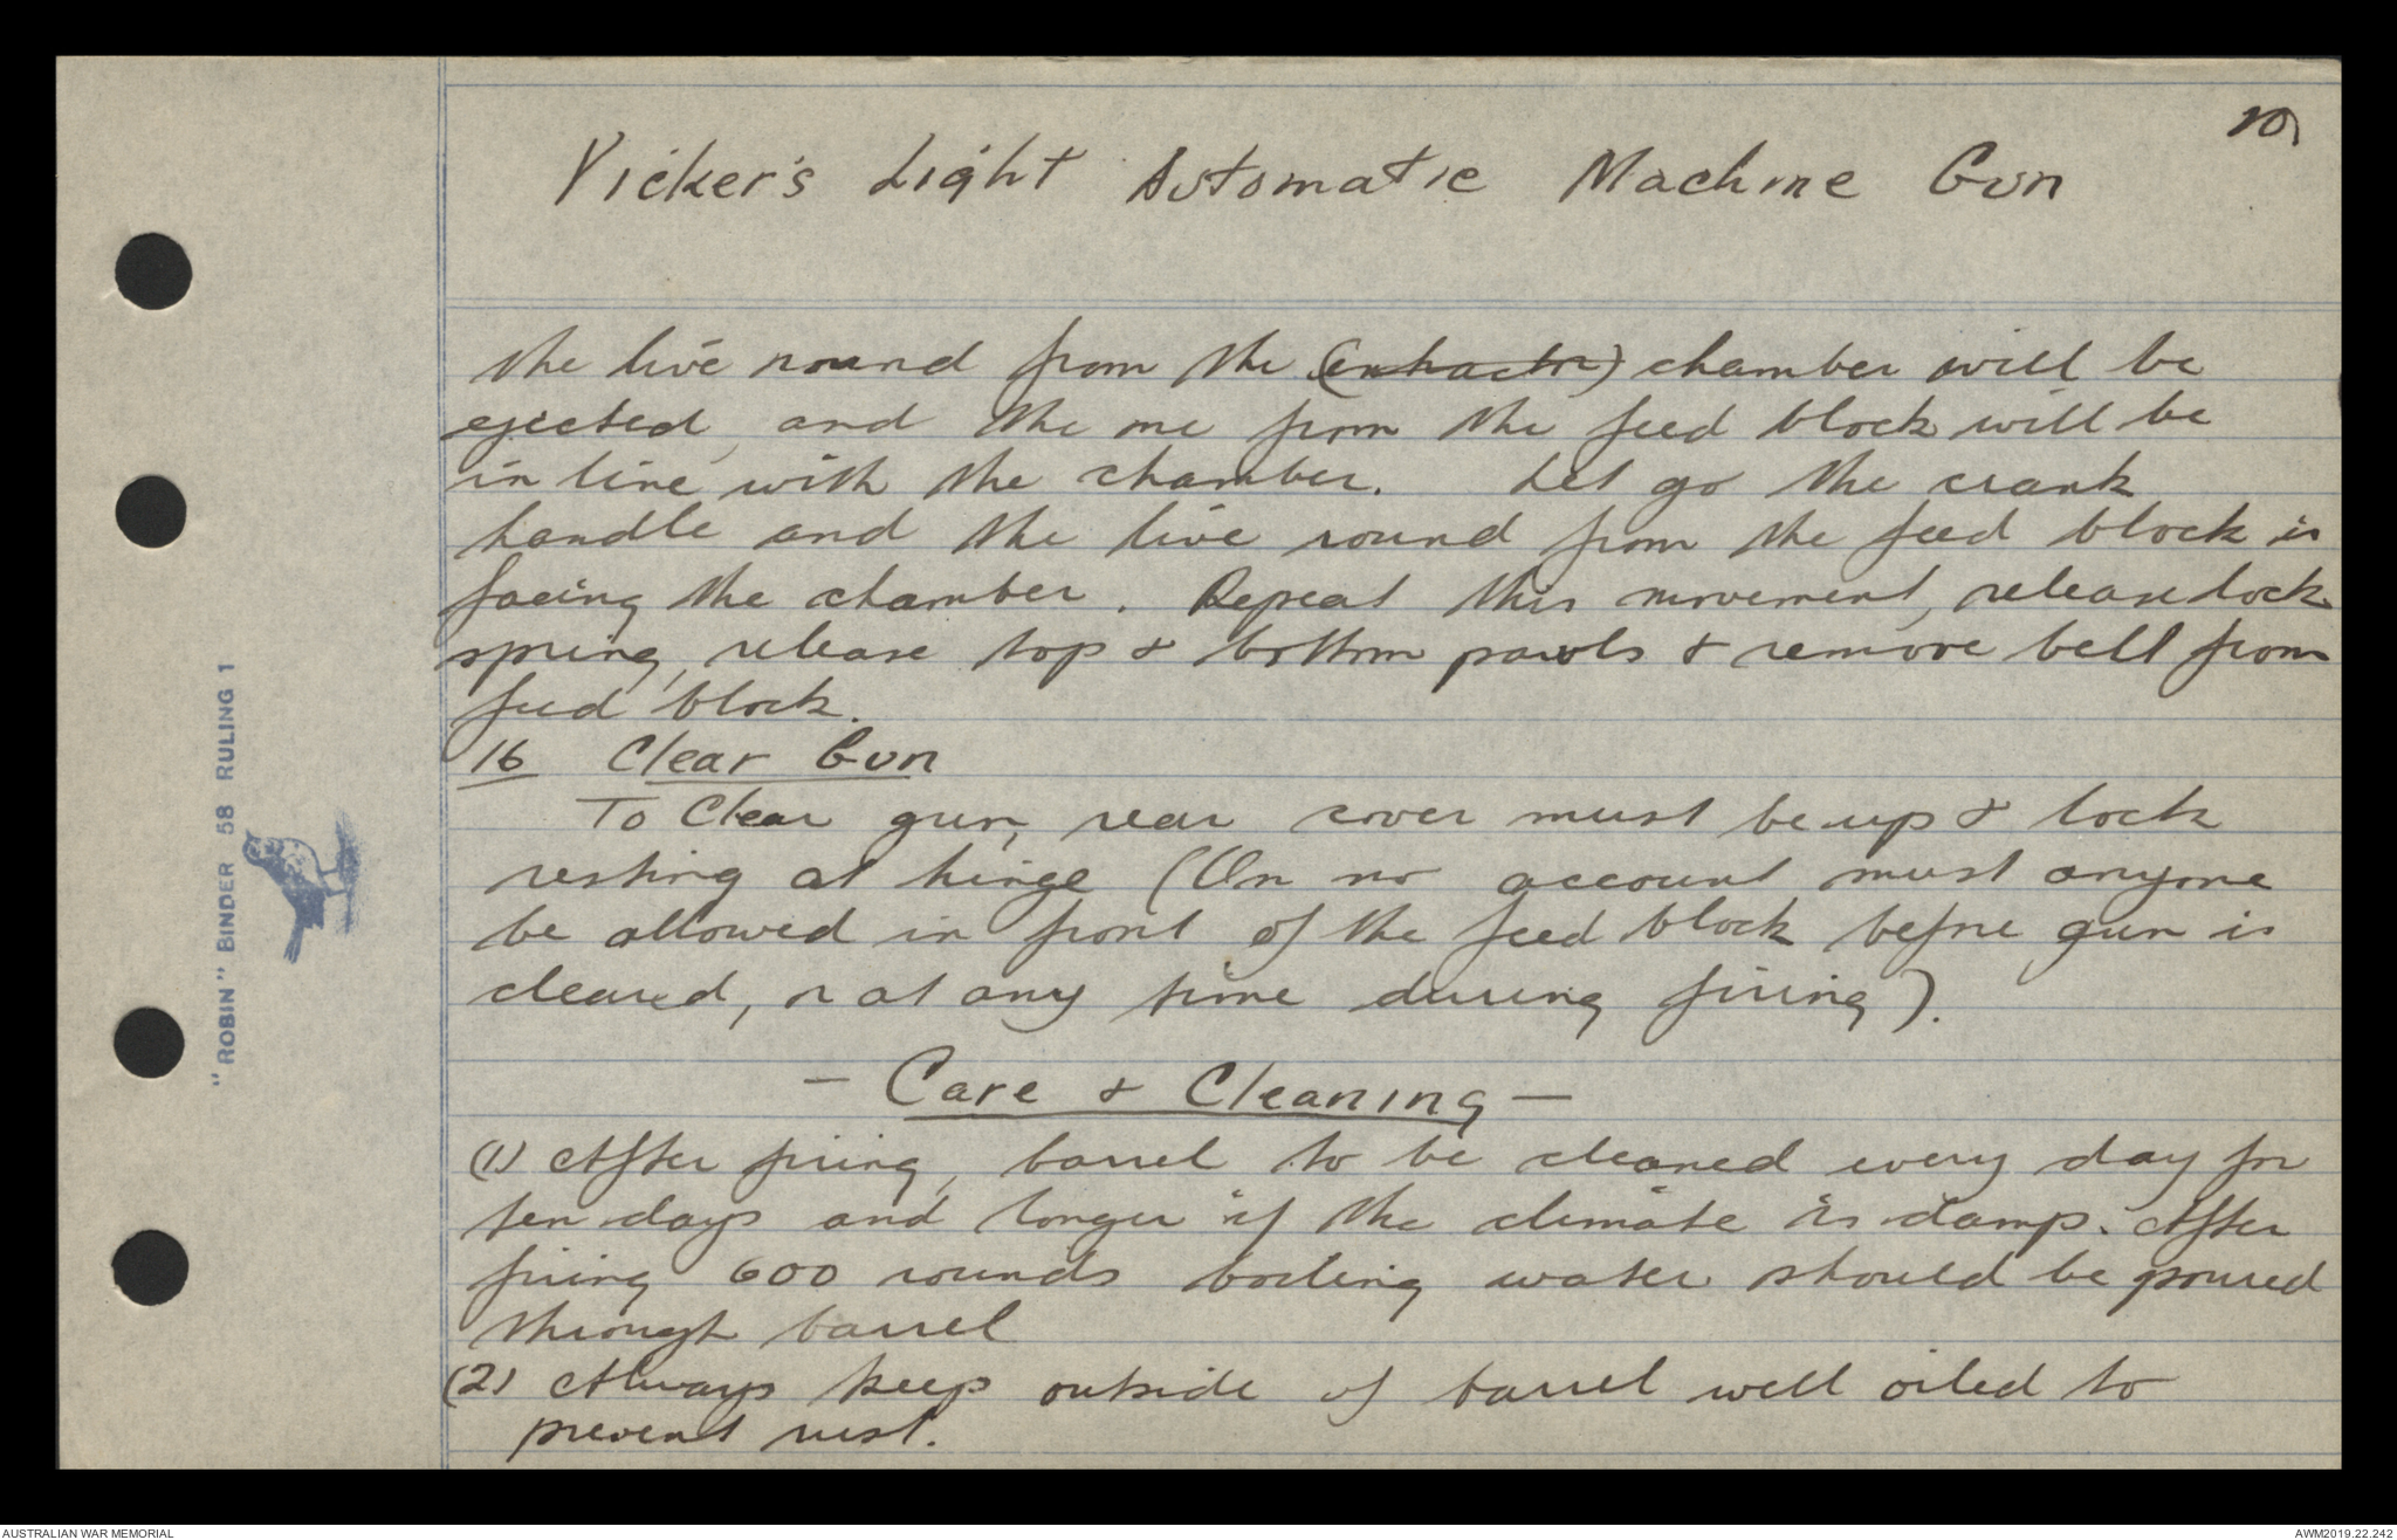 20)
Vicker's Light Automatic Machine Gun
the live round from the (extractor) chamber will be
ejected, and the one from the feed block will be
in line with the chamber. Let go the crank
handle and the live round from the feed block is
facing the chamber. Repeat this movement, release lock
spring, release top & bottom pawls & remove belt from
feed block.
16 Clear Gun
To Clear gun, rear cover must be up & lock
resting at hinge (On no account must anyone
be allowed in front of the feed block before gun is
cleared, or at any time during firing).
- Care & Cleaning -
(1) After firing, barrel to be cleaned every day for
ten days and longer if the climate is damp. After
firing 600 rounds boiling water should be poured
through barrel
(2) Always keep outside of barrel well oiled to
prevent rust.
"ROBIN" BINDER 58 RULING 1
AUSTRALIAN WAR MEMORIAL
AWM2019.22.242